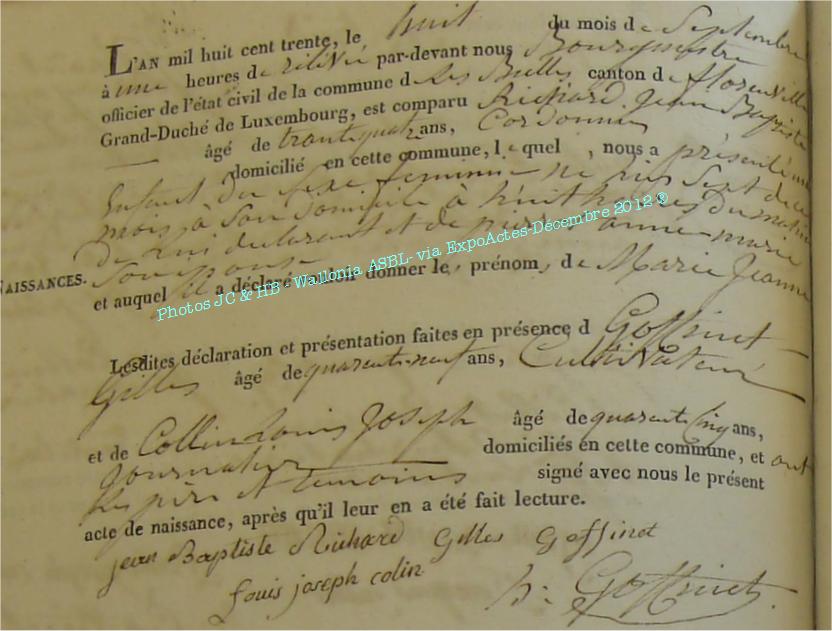 L'AN mil huit cent trente, le huit du mois de Septembre
à une heures de relevée par-devant nous Bourgmestre
officier de l'état civil de la commune des Bulles canton de florenville
Grand-Duché de Luxembourg, est comparu Richard Jean Baptiste
âgé de trantequatre ans, Cordonnier
domicilié en cette commune, lequel, nous a présenté un
Enfant du sexe feminin né hier Sept de ce
mois à Son domicile à huit heures du matin
De lui declarant et de anne-marie
Son epouse
NAISSANCES.
et auquel il a déclaré vouloir donner les prénoms de Marie Jeanne
Lesdites déclaration et présentation faites en présence d Goffinet
Gilles âgé de quarente-neuf ans, Cultivateur
et de Collin Louis Joseph âgé de quarente Cinq ans,
Journalier domiciliés en cette commune, et ont
les père et temoins signé avec nous le présent
acte de naissance, après qu'il leur en a été fait lecture.
jean Baptiste Richard Gilles Goffinet
Louis joseph colin
h: Goffinet
Photos JC & HB - Wallonia ASBL- via ExpoActes-Décembre 2012 ®